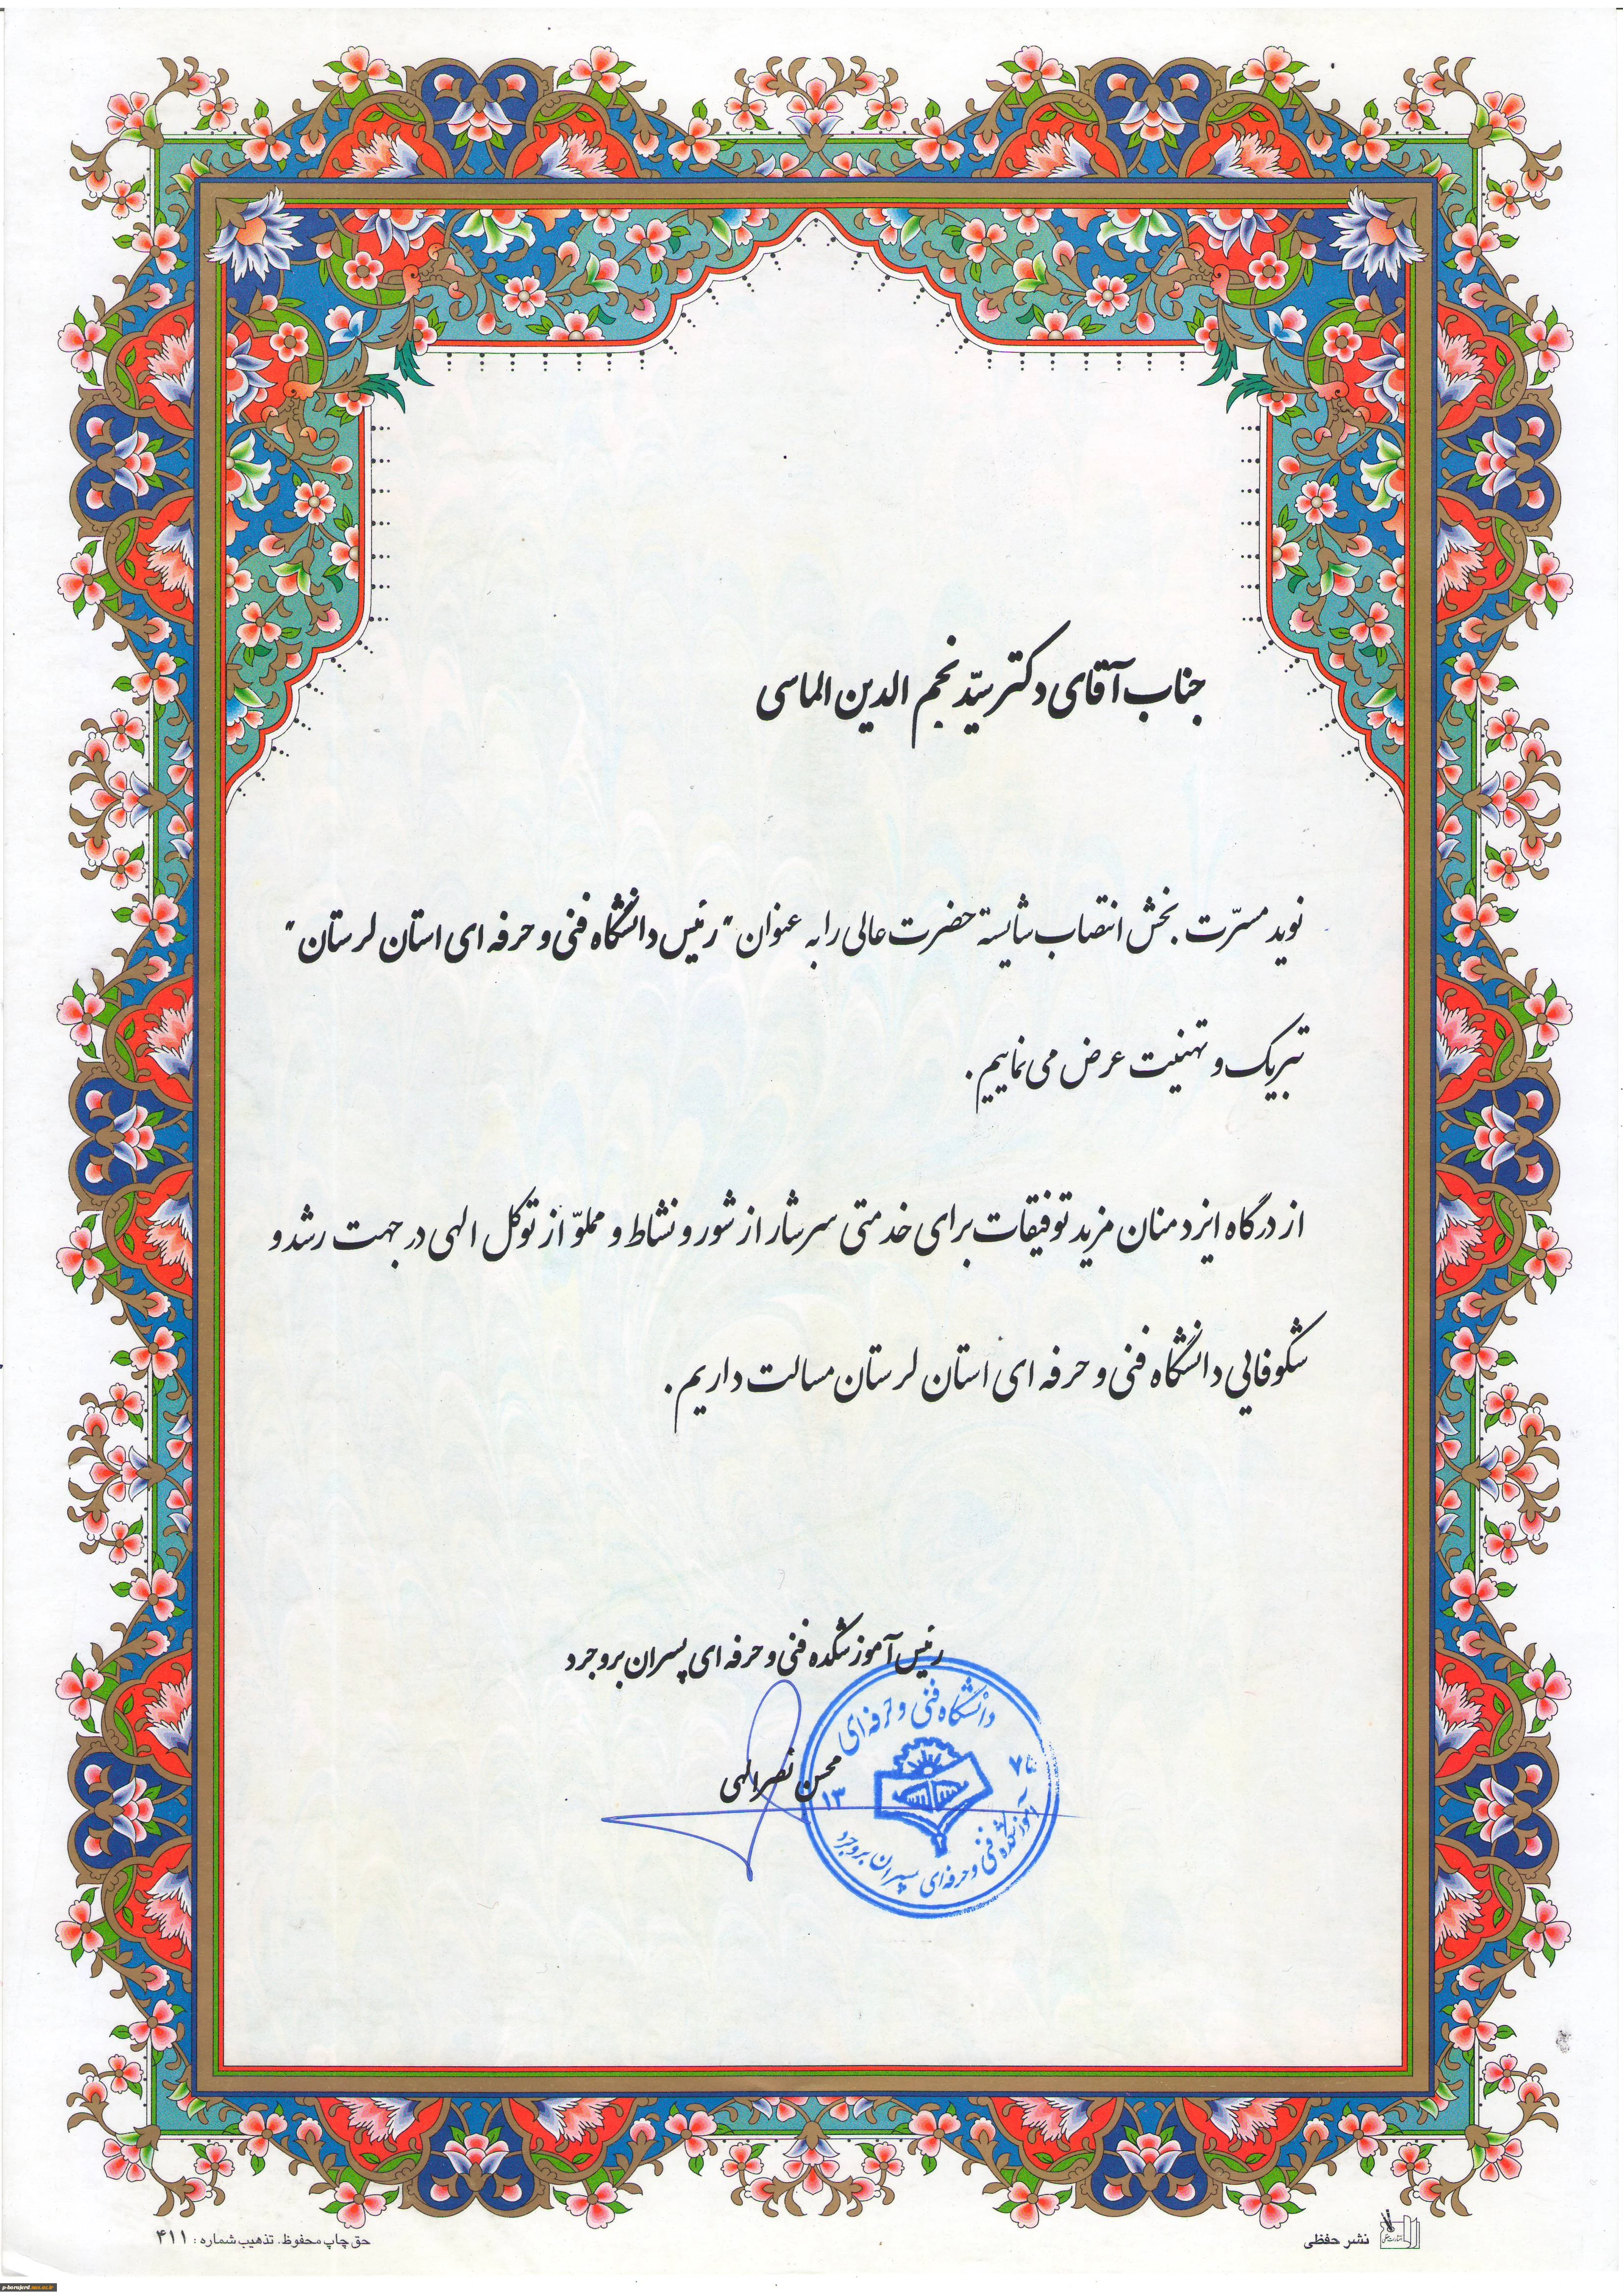 جناب آقای دکتر سیّد نجم الدین الماسی
نوید مسرّت بخش انتصاب شایسته حضرت عالی را به عنوان "رئیس دانشگاه فنی و حرفه ای استان لرستان"
تبریک و تهنیت عرض می نماییم.
از درگاه ایزد منان مزید توفیقات برای خدمتی سرشار از شور و نشاط و مملوّ از توکل الهی در جهت رشد و
شکوفایی دانشگاه فنی و حرفه ای استان لرستان مسالت داریم.
رئیس آموزشکده فنی و حرفه ای پسران بروجرد
محسن نصرالهی
دانشگاه فنی و حرفه ای
۱۳
آموزشکده فنی و حرفه ای پسران بروجرد
نشر حفظی
حق چاپ محفوظ. تذهیب شماره: ۴۱۱
p-borujerd.tvu.ac.ir